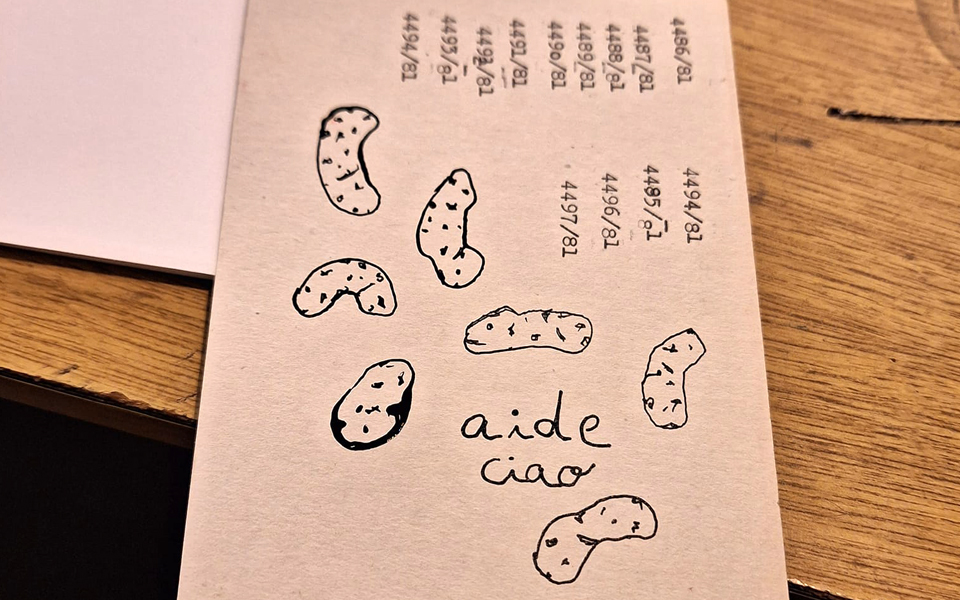 4486/81
4487/81
4488/81
4489/81
4490/81
4491/81
4492/81
4493/81
4494/81
4494/81
4495/81
4496/81
4497/81
aide
ciao